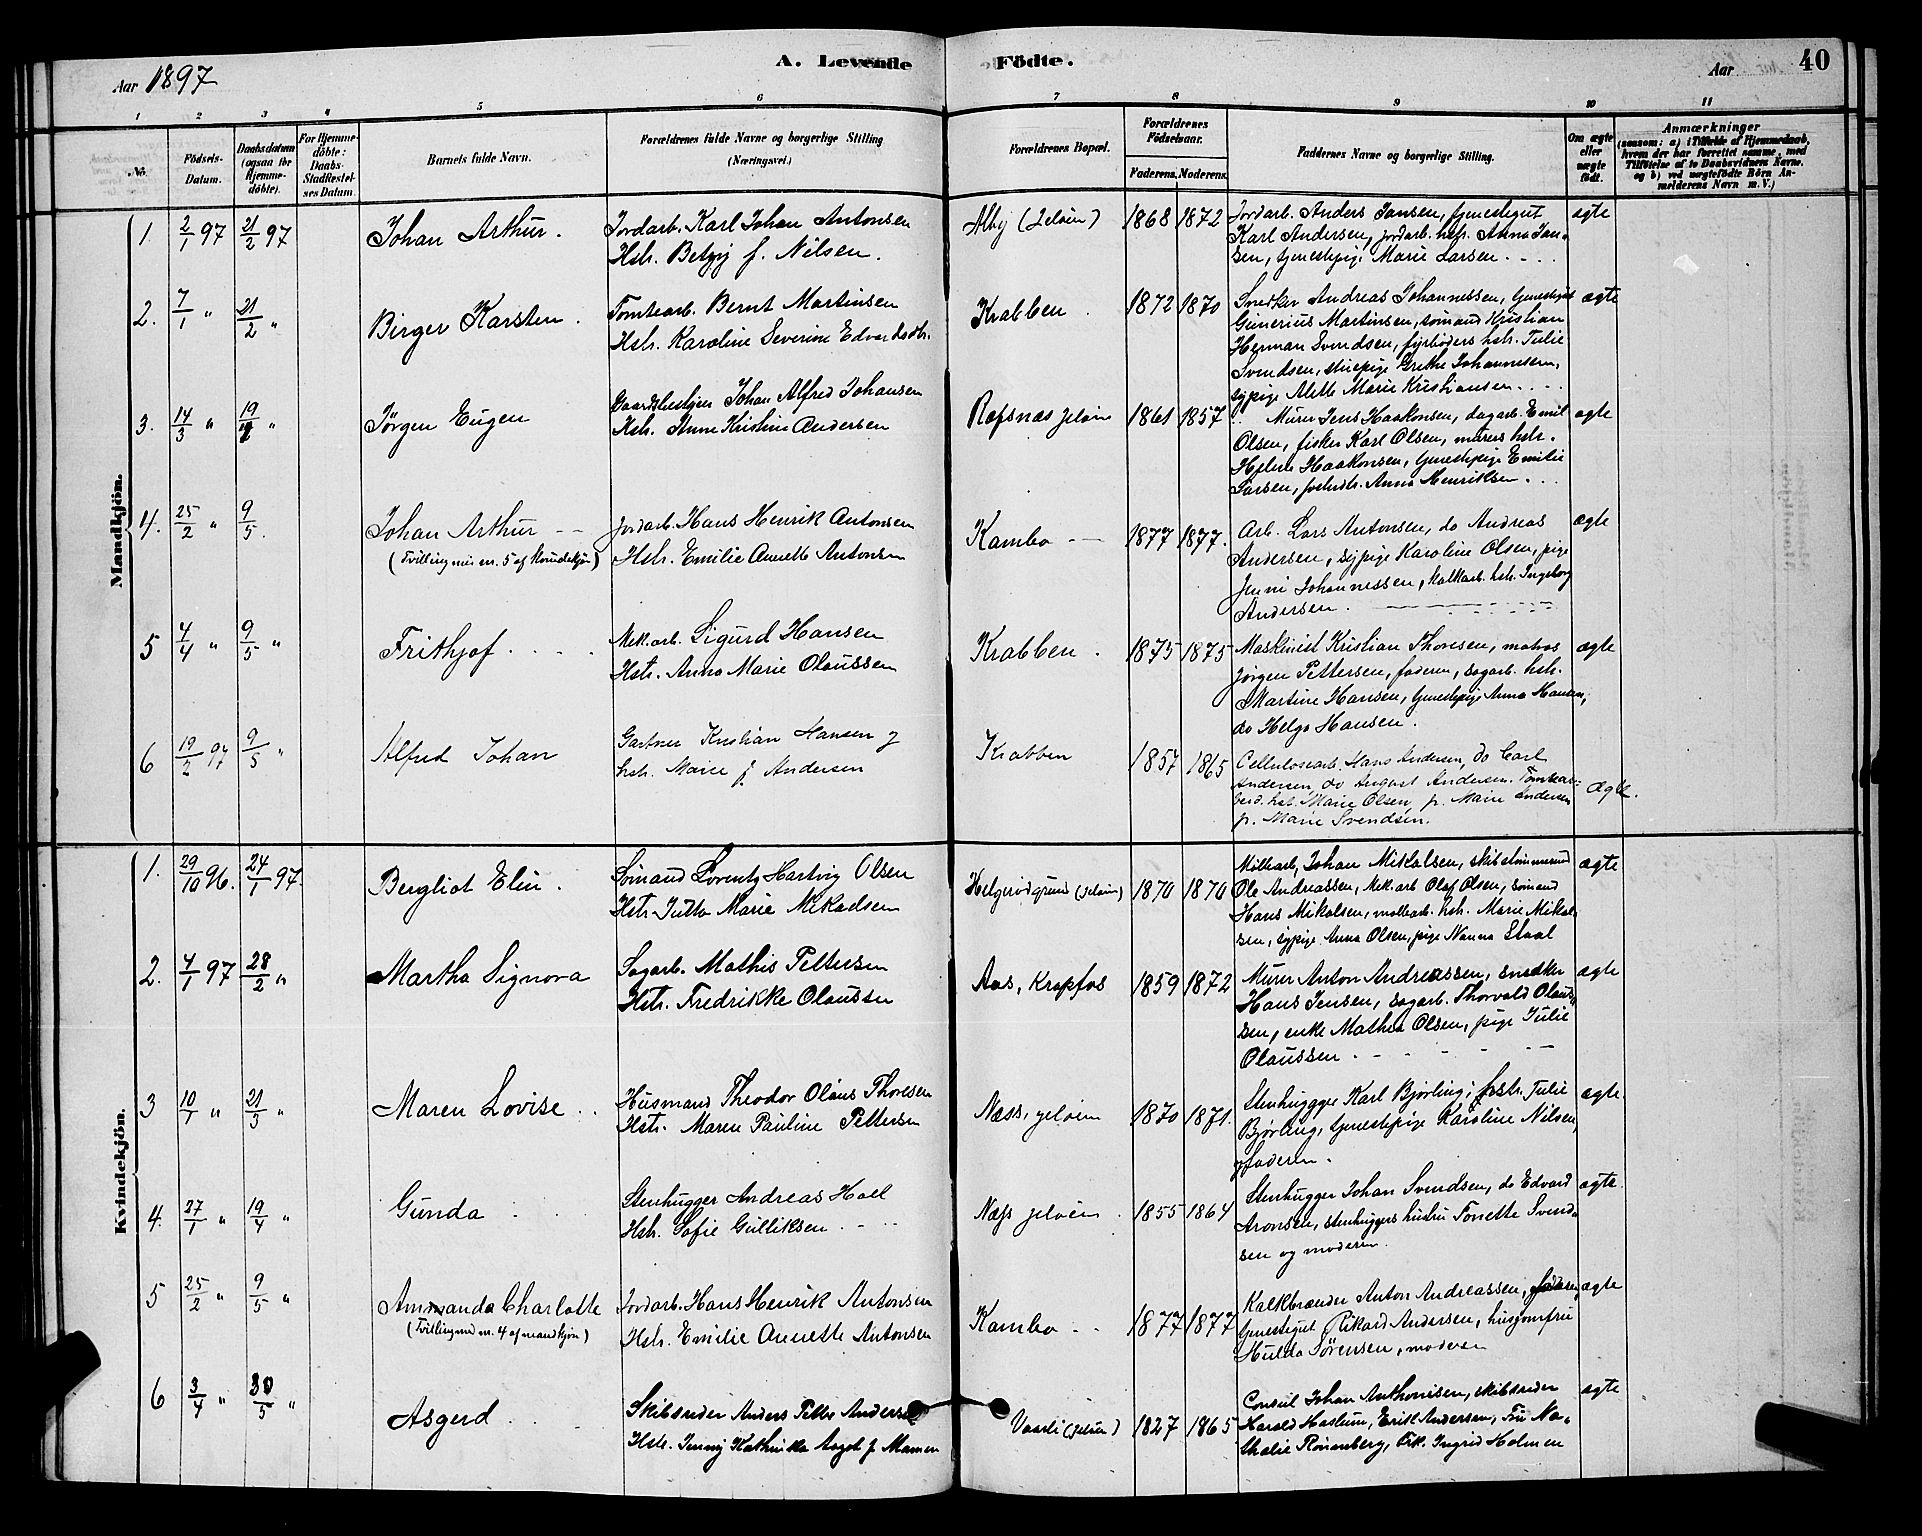 Aar 1897
A. Levende Födte.
Aar
40
1 2 3 4 5 6 7 8 9 10 11
No.
Födsels-Datum.
Daabsdatum (ogsaa for Hjemme-döbte).
For Hjemme-döbte: Daabs-Stadfestel-ses Datum.
Barnets fulde Navn.
Forældrenes fulde Navne og borgerlige Stilling (Næringsvei.)
Forældrenes Bopæl.
Forældrenes Födselsaar.
Faderens. Moderens.
Faddernes Navne og borgerlige Stilling.
Om ægte eller uægte födt.
Anmærkninger
(saasom: a) i Tilfælde af Hjemmedaab, hvem der har forrettet samme, med Tilföielse af to Daabsvidners Navne, og b) ved uægtefödte Börn An-melderens Navn m. V.)
Mandkjön.
1. 2/1 97 21/2 97 Johan Arthur. Jordarb. Karl Johan Antonsen
Hstr. Betzy f. Nilsen.
Alby (Jeløen) 1868 1872
Jordarb. Anders Jansen, tjenestegut
Karl Andersen, jordarb. hstr. Anna Jan-
sen, tjenestepige Marie Larsen. ægte
2. 7/1 " 21/2 " Birger Karsten. Tomtearb. Bernt Martinsen
Hstr. Karoline Severine Edvardsdtr.
Krabben. 1872 1870
Snedker Andreas Johannessen, tjenestegut
Gunerius Martinsen, sömand Kristian
Herman Svendsen, fyrböders hstr. Julie
Svendsen, stuepige Grethe Johannesen,
sypige Alette Marie Kristiansen. ægte
3. 14/3 " 19/4 " Jørgen Eugen Gaardsbestyrer Johan Alfred Johansen
Hstr. Anne Kristine Andersen
Refsnæs Jeløen 1861 1857
Murer Jens Haakonsen, dagarb. Emil
Olsen, fisker Karl Olsen, murers hstr.
Helene Haakonsen, tjenestepige Emilie
Larsen, Anna Henriksen. ægte
4. 25/2 " 9/5. Johan Arthur
(Tvilling med nr. 5 af Kvindekjön)
Jordarb. Hans Henrik Antonsen
Hstr. Emilie Annette Antonsen
Kambo 1877 1877.
Arb. Lars Antonsen, do Andreas
Andersen, sypige Karoline Olsen, pige
Jenni Johannessen, kalkarb. hstr. Ingeborg
Andersen. ægte
5 4/4 " 9/5 " Frithjof. Mek.arb. Sigurd Hansen
Hstr. Anna Marie Olaussen
Krabben. 1875 1875
Maskinist Kristian Thoresen, matros
Jörgen Pettersen, faderen, sagarb. hstr.
Martine Hansen, tjenestepige Anna Hansen,
do Helga Hansen. ægte
6 19/2 97 9/5 " Alfred Johan Gartner Kristian Hansen og
hstr. Marie f. Andersen
Krabben 1857 1865
Cellulosearb. Hans Andersen, do Carl
Andersen, do August Andersen. Tomtear-
beid. hst. Marie Olsen, p. Marie Andersen
p. Marie Svendsen. ægte.
Kvindekjön.
1. 29/10 96. 24/1 97. Bergliot Elin. Sömand Lorentz Hartvig Olsen
Hstr. Jutta Marie Mikaelsen
Helgerödgrund (Jeløen) 1870 1870
Möllearb. Johan Mikalsen, skibstömmermand
Ole Andreassen, Mek.arb Olaf Olsen, sömand
Hans Mikalsen, möllearb. hstr. Marie Mikal-
sen, sypige Anna Olsen, pige Nanna Staal ægte
2. 4/1 97 28/2 " Martha Signora Sagarb. Mathis Pettersen
Hstr. Fredrikke Olaussen
Aas, Krapfos 1859 1872
Murer Anton Andreassen, snedker
Hans Jensen, sagarb. Thorvald Olaus-
sen, enke Mathea Olsen, pige Julie
Olaussen. ægte
3 10/1 " 21/3 " Maren Lovise. Husmand Theodor Olaus Thoresen
Hstr. Maren Pauline Pettersen
Næss, Jeløen 1870 1871.
Stenhugger Karl Bjørling, hstr. Julie
Bjørling, tjenestepige Karoline Nilsen,
faderen. ægte.
4. 27/1 " 19/4 " Gunda Stenhugger Andreas Hoel
Hstr. Sofie Gulliksen.
Næss Jeløen. 1855 1864
Stenhugger Johan Svendsen, do Edvard
Aronsen, stenhuggers hustru Tonette Svend-
sen og moderen. ægte.
5 25/2 " 9/5 " Ammanda Charlotte
(Tvilling med nr. 4 af mandkjön)
Jordarb. Hans Henrik Antonsen
Hstr. Emilie Annette Antonsen
Kambo 1877 1877
Kalkbrænder Anton Andreassen, faderen,
tjenestegut Rikard Andersen, husjomfru
Hulda Sørensen, moderen ægte
6 3/4 " 30/5 " Asgerd Skibsreder Anders Petter Andersen
Hstr. Jenny Kathinka Aagot f. Mamen
Vaarli (Jeløen) 1827 1865
Consul Johan Anthonisen, skibsreder
Harald Haslum, Erik Andersen, Fru Na-
thalie Rönenberg, Frk. Ingrid Holmen ægte